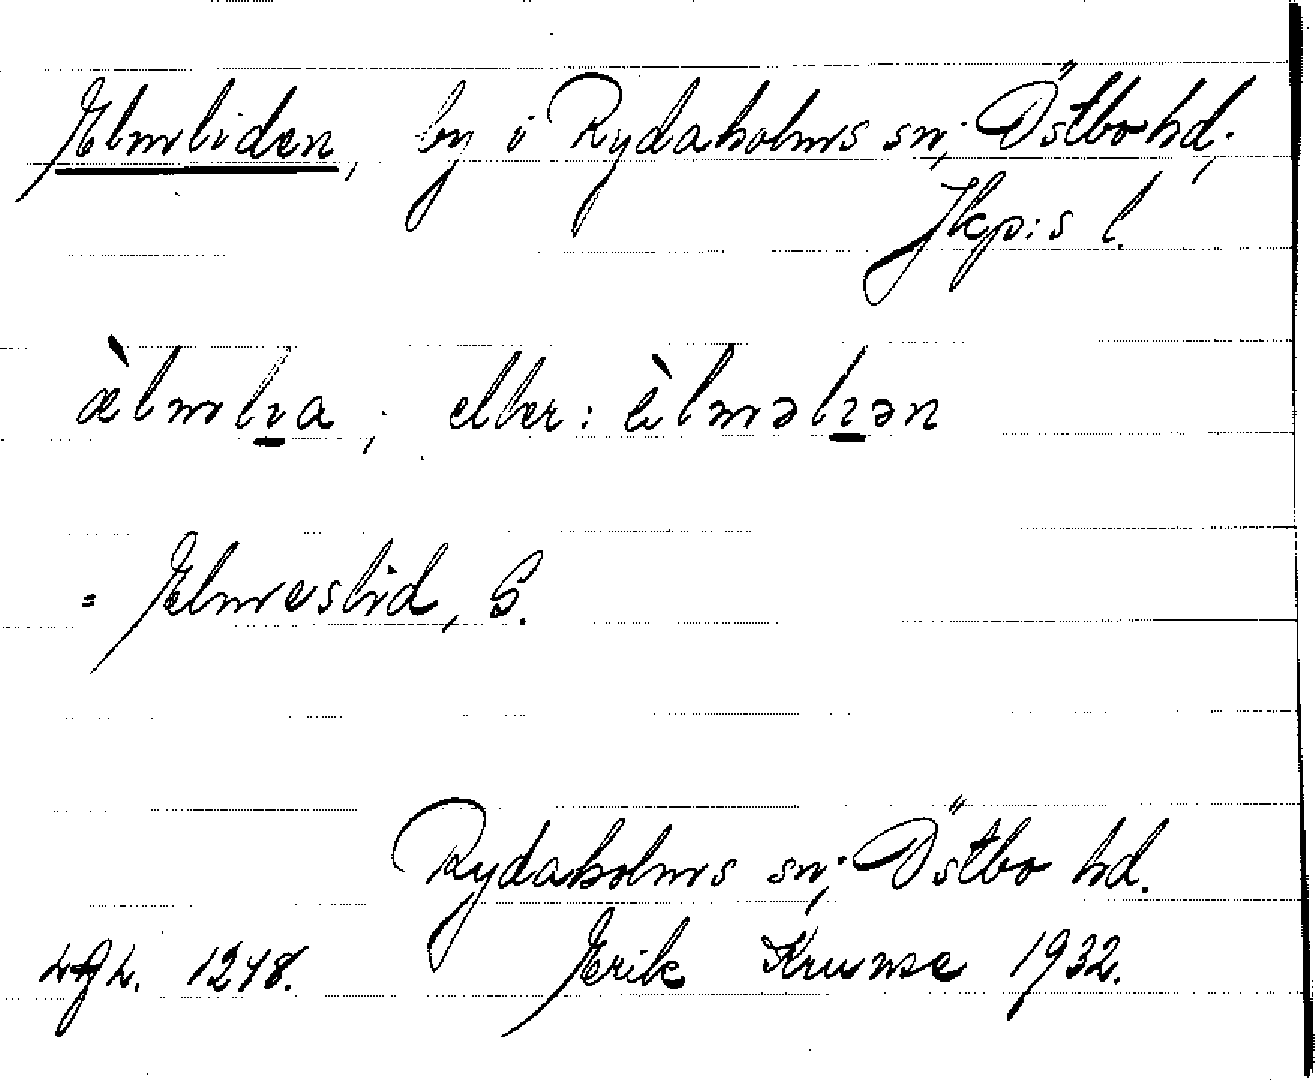 Elmliden, by i Rydaholms sn; Östbo hd;
Jkp:s l.
æ̀lmlɩ̱a; eller: èlməlɩ̱ən
= Elmeslid, S.
Rydaholms sn; Östbo hd.
1248. Erik Krunse 1932.